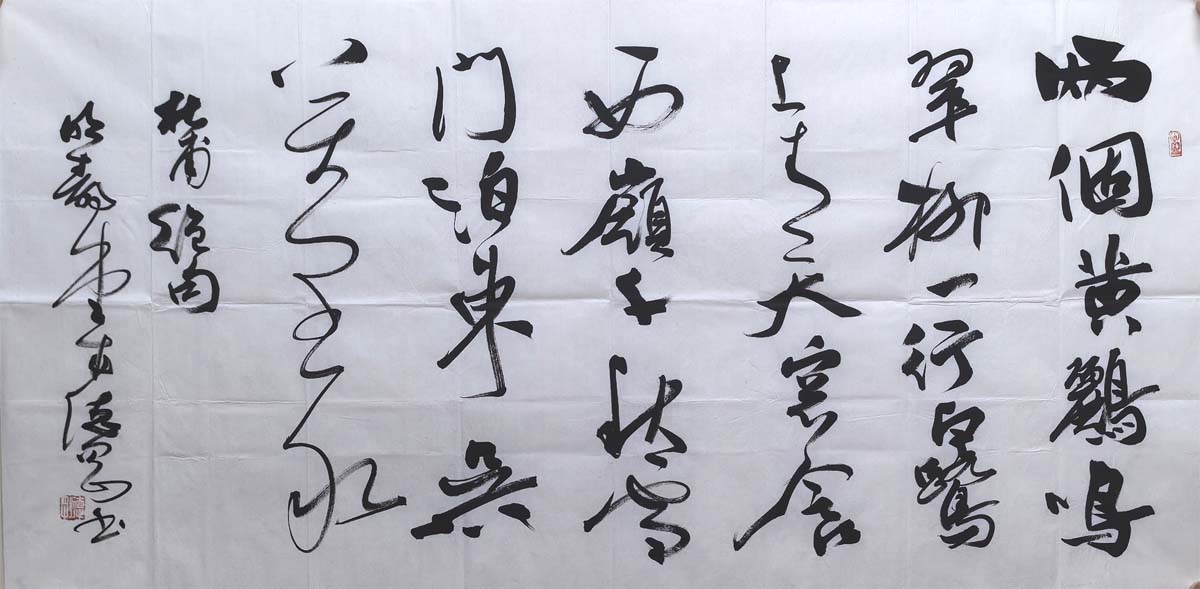 兩個黄鸝鳴
翠柳一行白鷺
上青天窓含
西嶺千秋雪
門泊東吳
萬里船
杜甫絕句
壽堂主德書